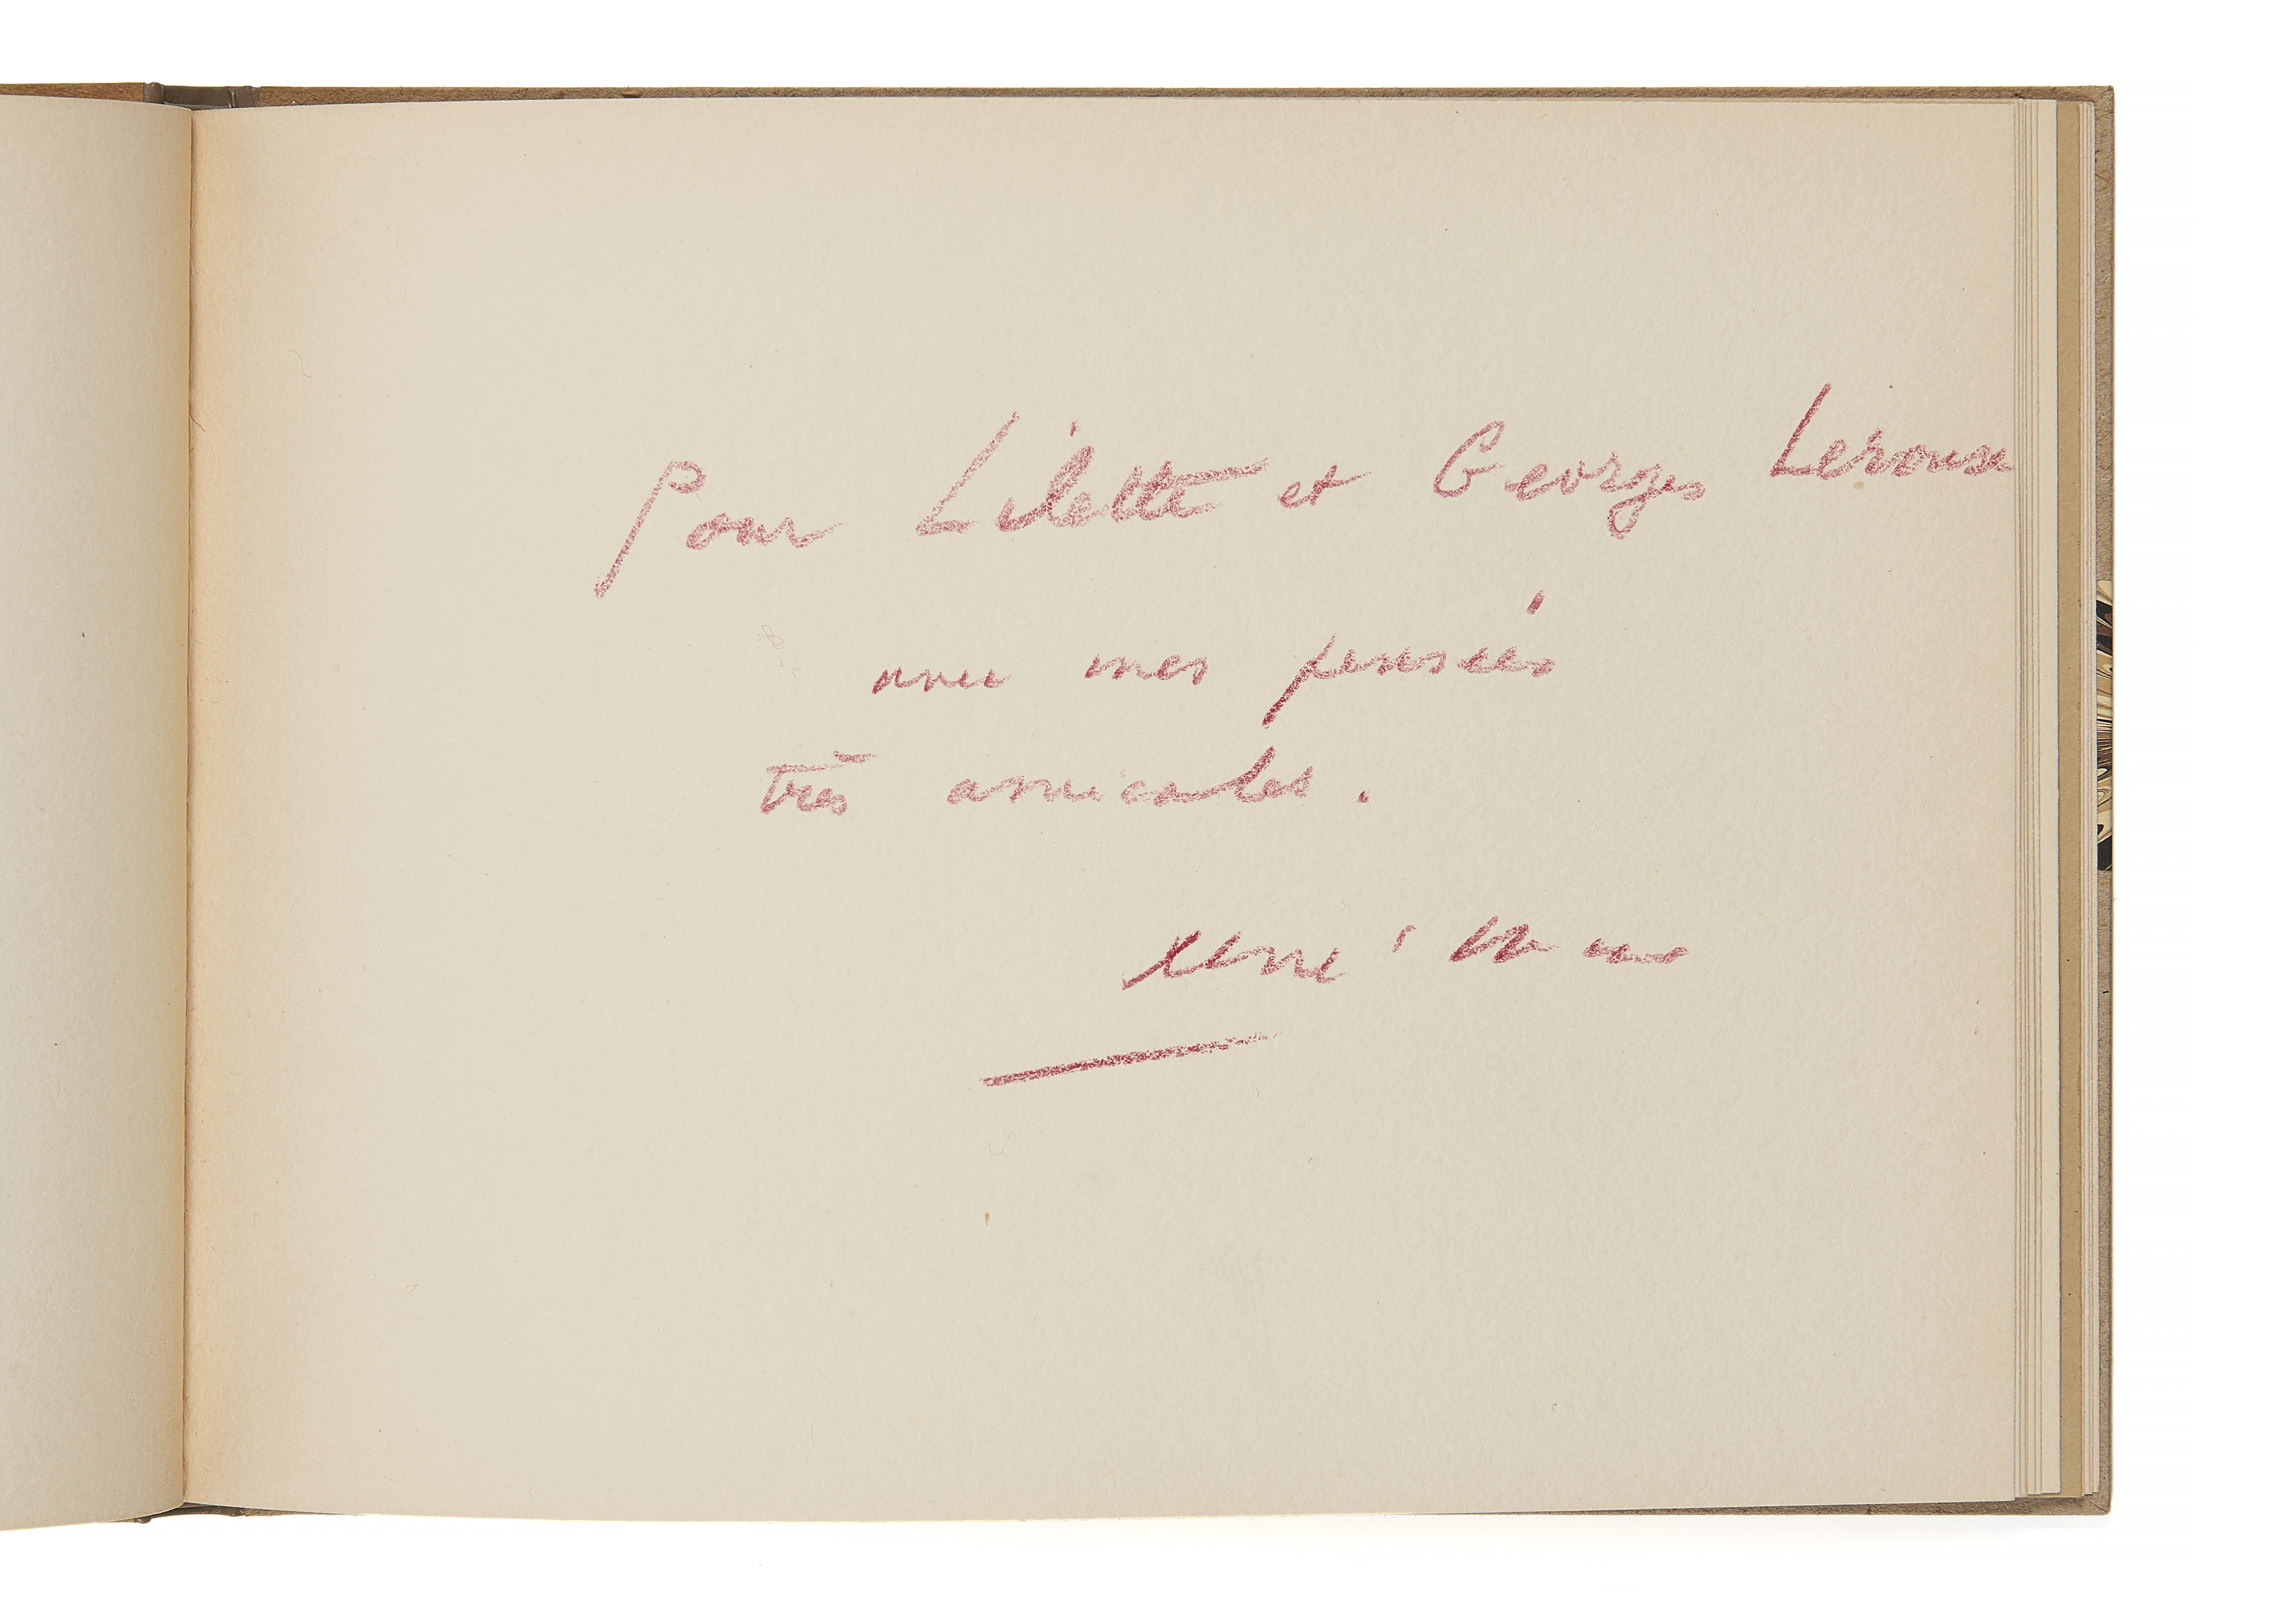 Pour Lilette et Georges Leroux
avec mes pensées
très amicales.
René